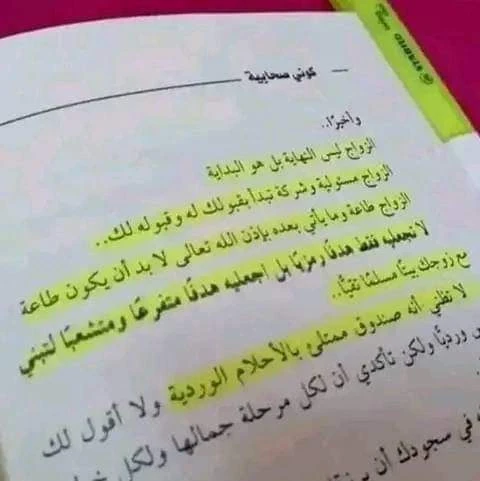 STABILO
كوني صحابية
وأخيرًا..
الزواج ليس النهاية بل هو البداية
الزواج مسئولية وشركة تبدأ بقبولك له وقبوله لك..
الزواج طاعة وما يأتي بعده بإذن الله تعالى لا بد أن يكون طاعة
لا تجعليه فقط هدفًا رمزيًا بل اجعليه هدفًا متفرعًا ومتشعبًا لتبني
مع زوجك بيتًا مسلمًا تقيًا..
لا تظني أنه صندوق ممتلئ بالأحلام الوردية ولا أقول لك
ورديًا ولكن تأكدي أن لكل مرحلة جمالها ولكل
في سجودك أن